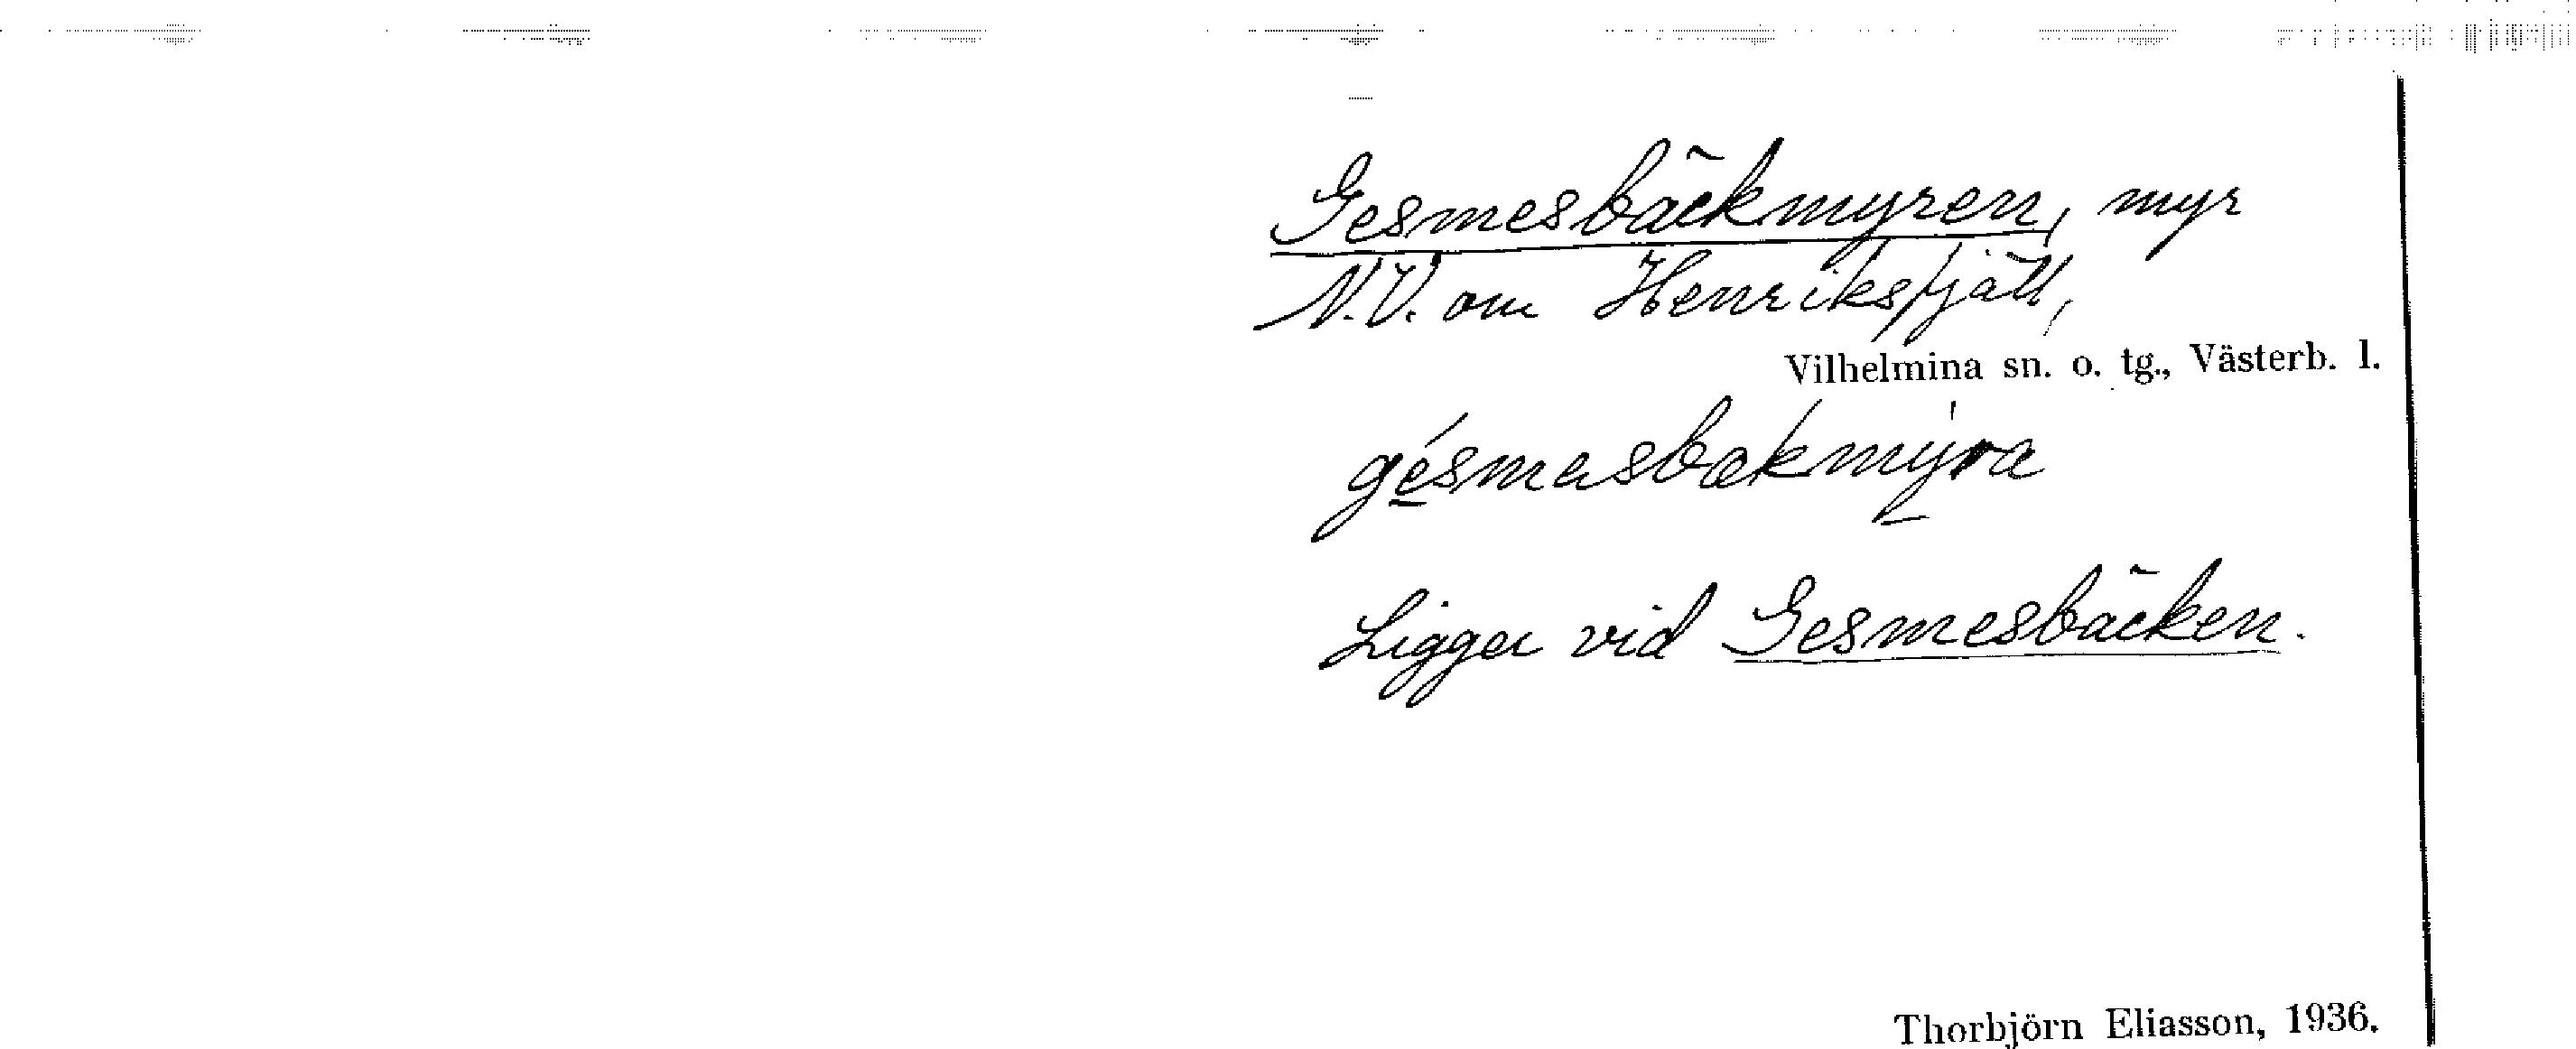 Gesmesbäckmyren, myr
N.V. om Henriksfjäll,
Vilhelmina sn. o. tg., Västerb. l.
gésmasbækmýra
Ligger vid Gesmesbäcken.
Thorbjörn Eliasson, 1936.